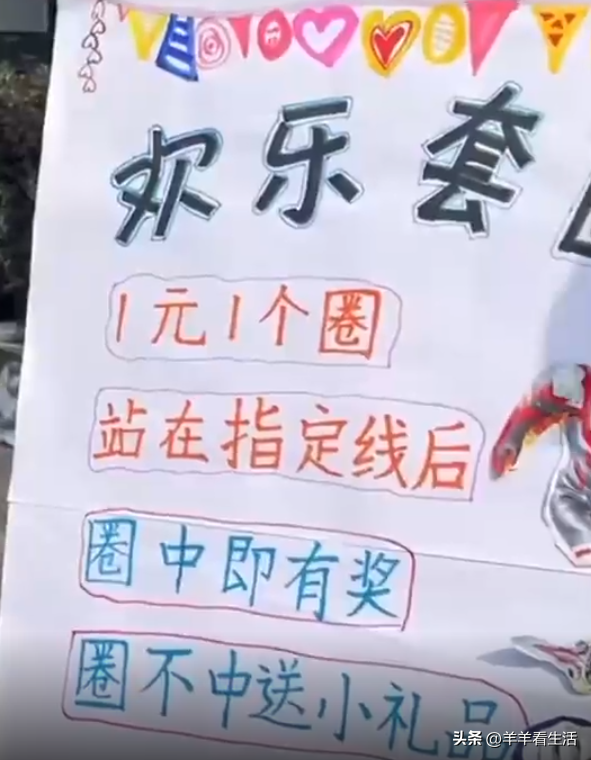 欢乐套
1元1个圈
站在指定线后
圈中即有奖
圈不中送小礼品
头条 @羊羊看生活